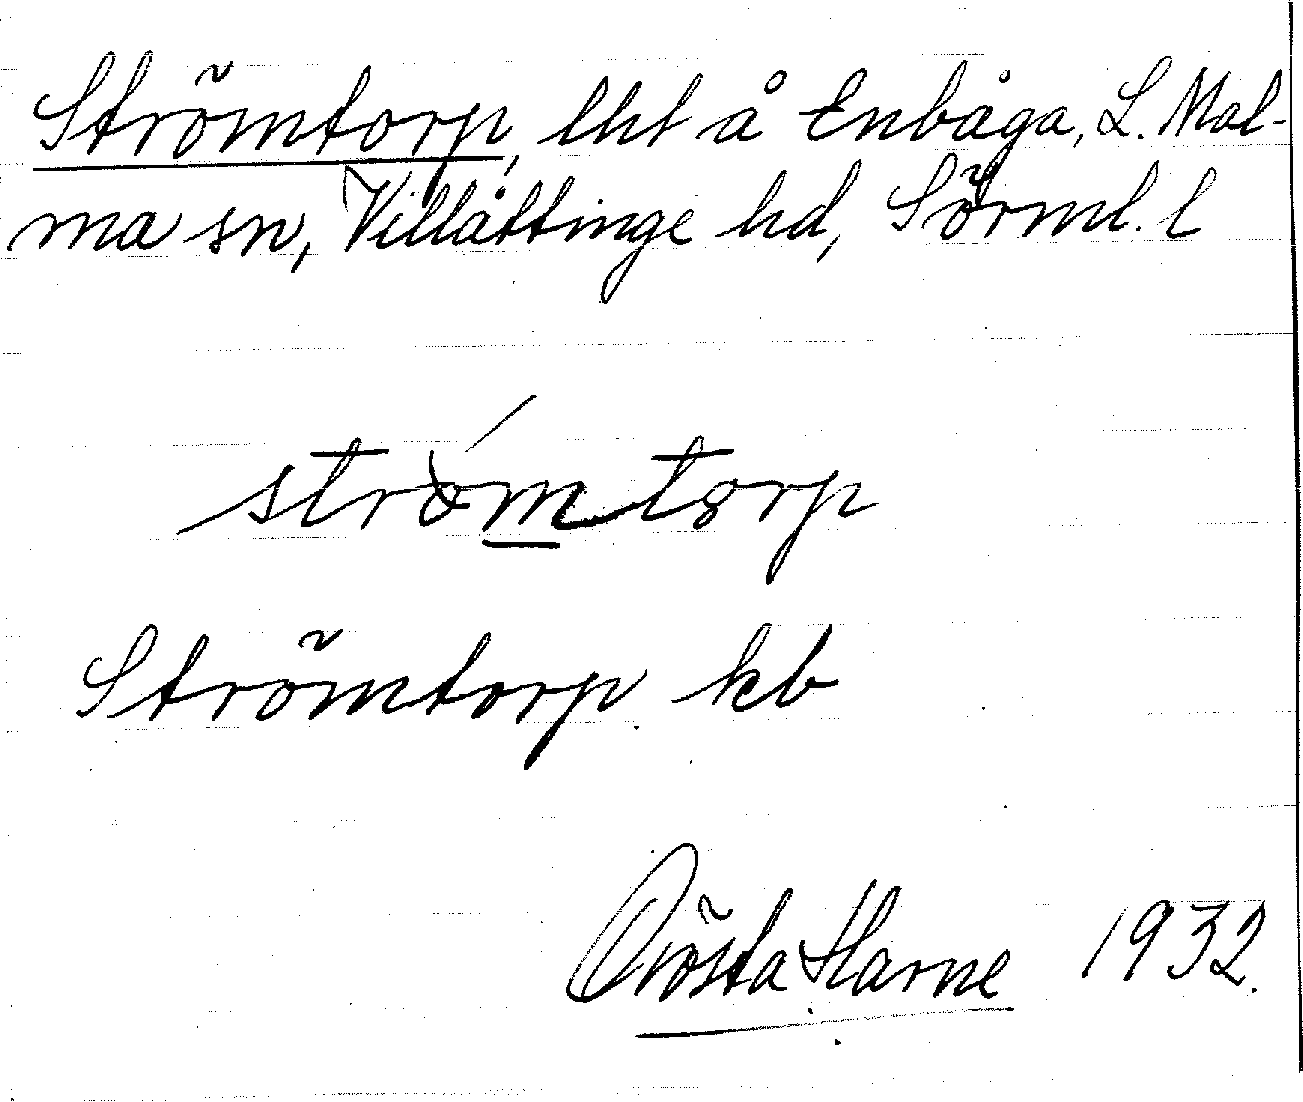 Strömtorp, lht å Enbåga, L. Mal-
ma sn, Villåttinge hd, Sörml. l
strömtorp
Strömtorp kb
Gösta Harne 1932.